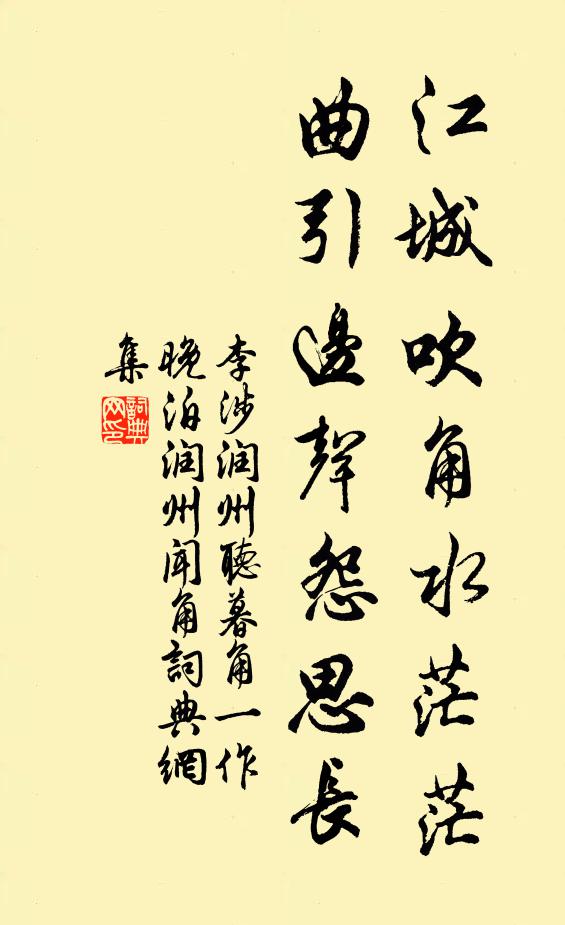 江城吹角水茫茫
曲引邊聲怨思長
李涉润州聽暮角一作
晚泊润州聞角詞典網
集
詞典网印